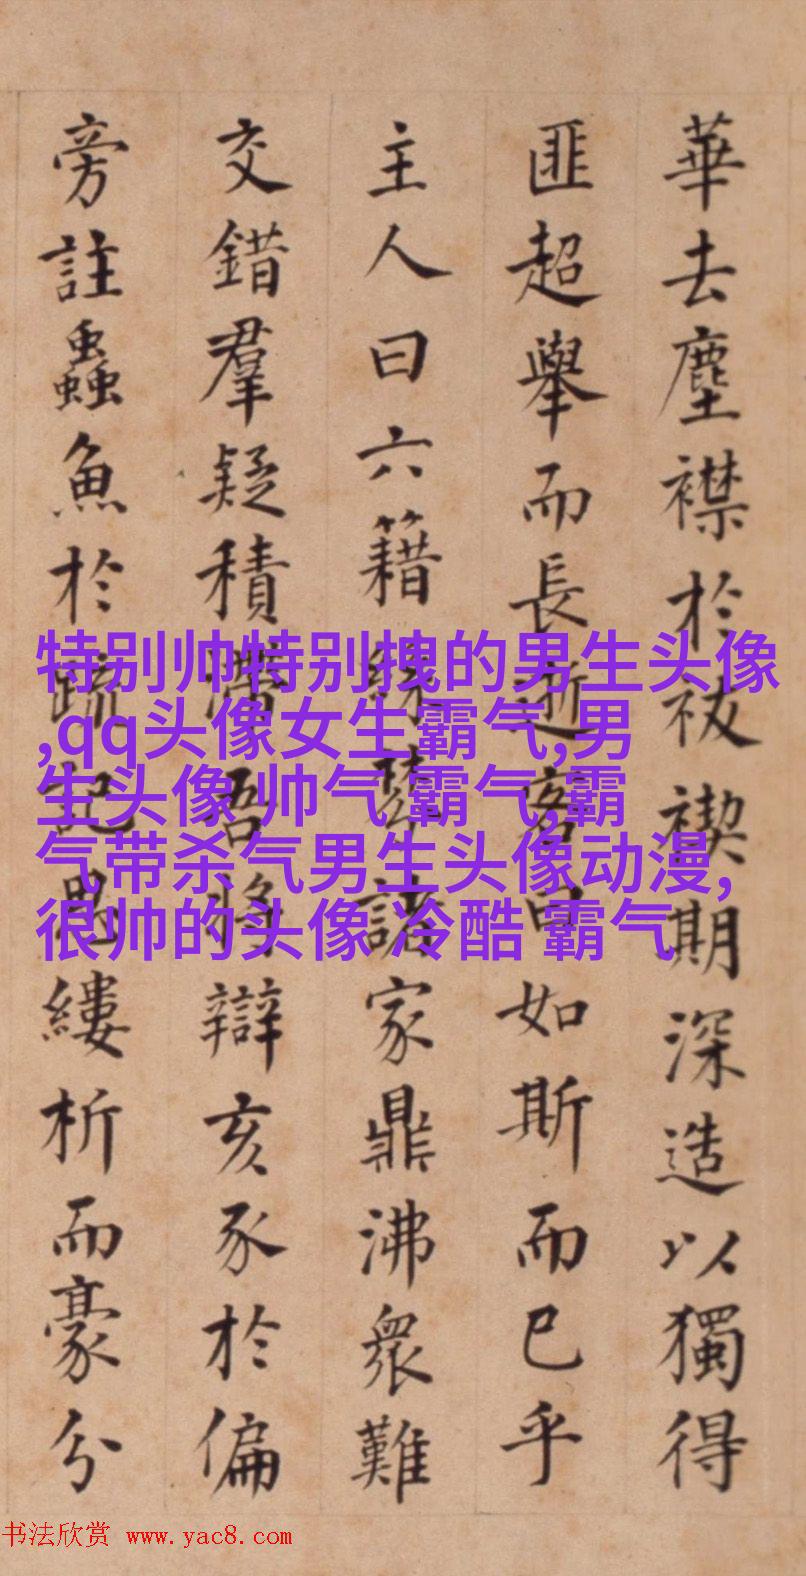 華去塵襟於祓禊期深造以獨得
匪超舉而長逝客曰如斯而已乎
主人曰六籍諸家鼎沸衆難
交錯羣疑積滯吾將辯亥豕於偏
旁註蟲魚於疏記思縷析而豪分
特别帅特别拽的男生头像
,qq头像女生霸气,男
生头像 帅气 霸气,霸
气带杀气男生头像动漫,
很帅的头像 冷酷 霸气
书法欣赏 www.yac8.com